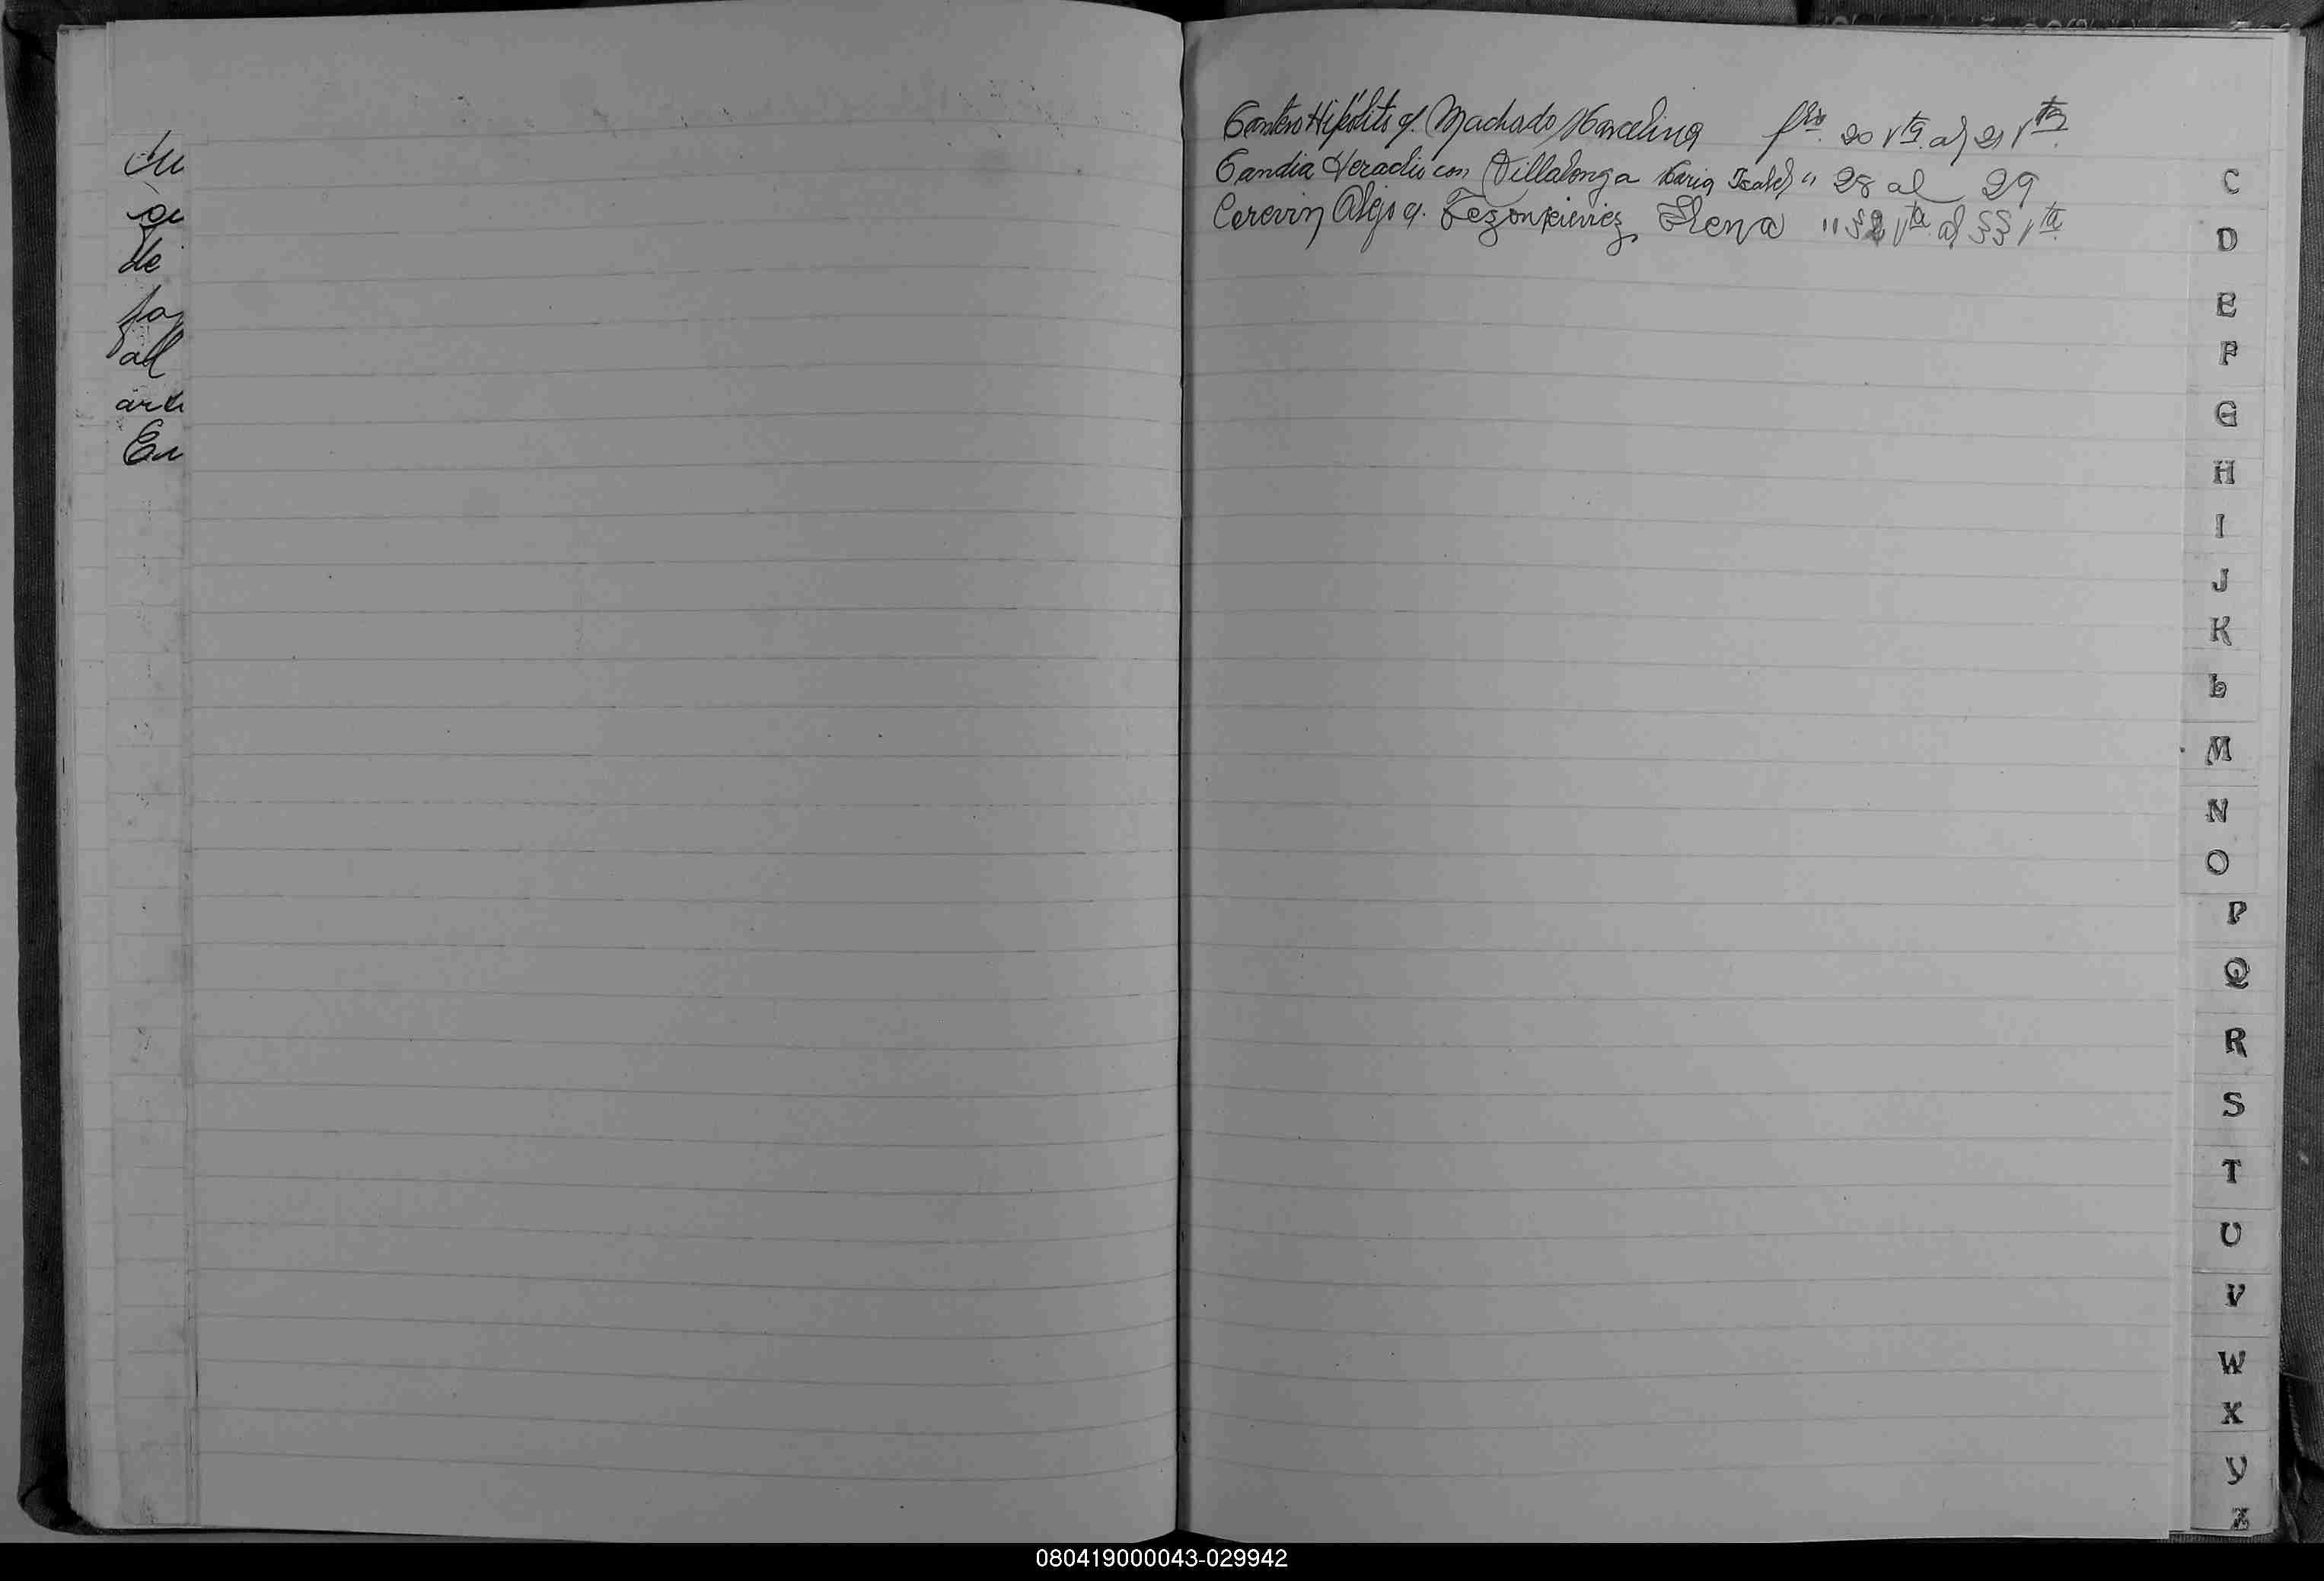 du
qu
de
fa
all
arti
En
Cantero Hipólito c/. Machado Marcelina flio. 20 vta. al 21 vta.
Candia Heraclio con Villalonga Maria Isabel " 28 al 29
Cerevin Alejo c. Elena " 32 vta. al 33 vta.
C
D
E
F
G
H
I
J
K
L
M
N
O
P
Q
R
S
T
U
V
W
X
Y
Z
080419000043-029942